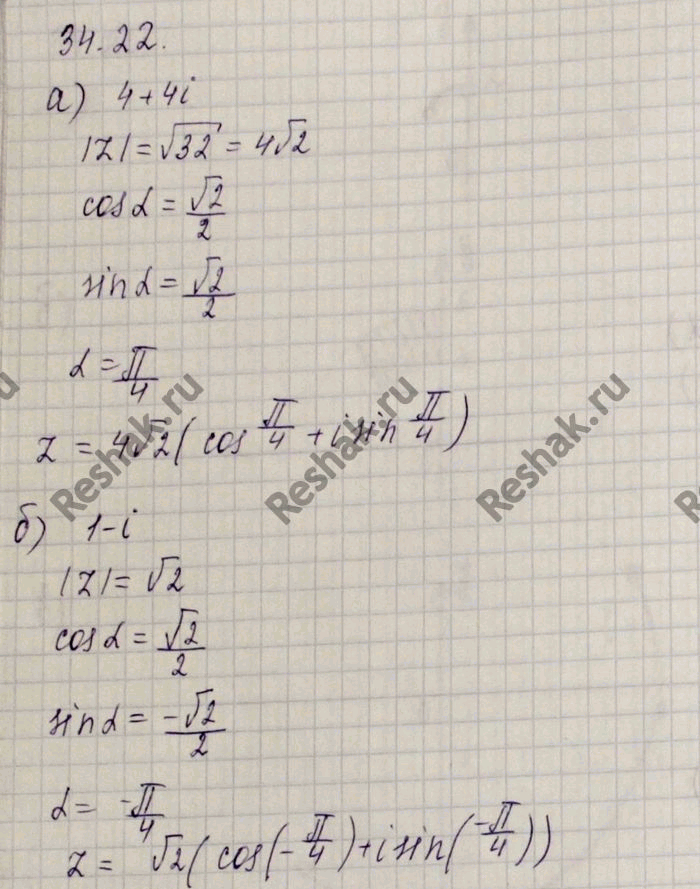 34.22.
а) 4+4i
|z|=√32 = 4√2
cosα = √2/2
sinα = √2/2
α = π/4
z = 4√2( cos π/4 + i sin π/4 )
Reshak.ru Reshak.ru Reshak.ru
б) 1-i
|z|= √2
cosα = √2/2
sinα = -√2/2
α = -π/4
z = √2( cos(-π/4)+i sin(-π/4))